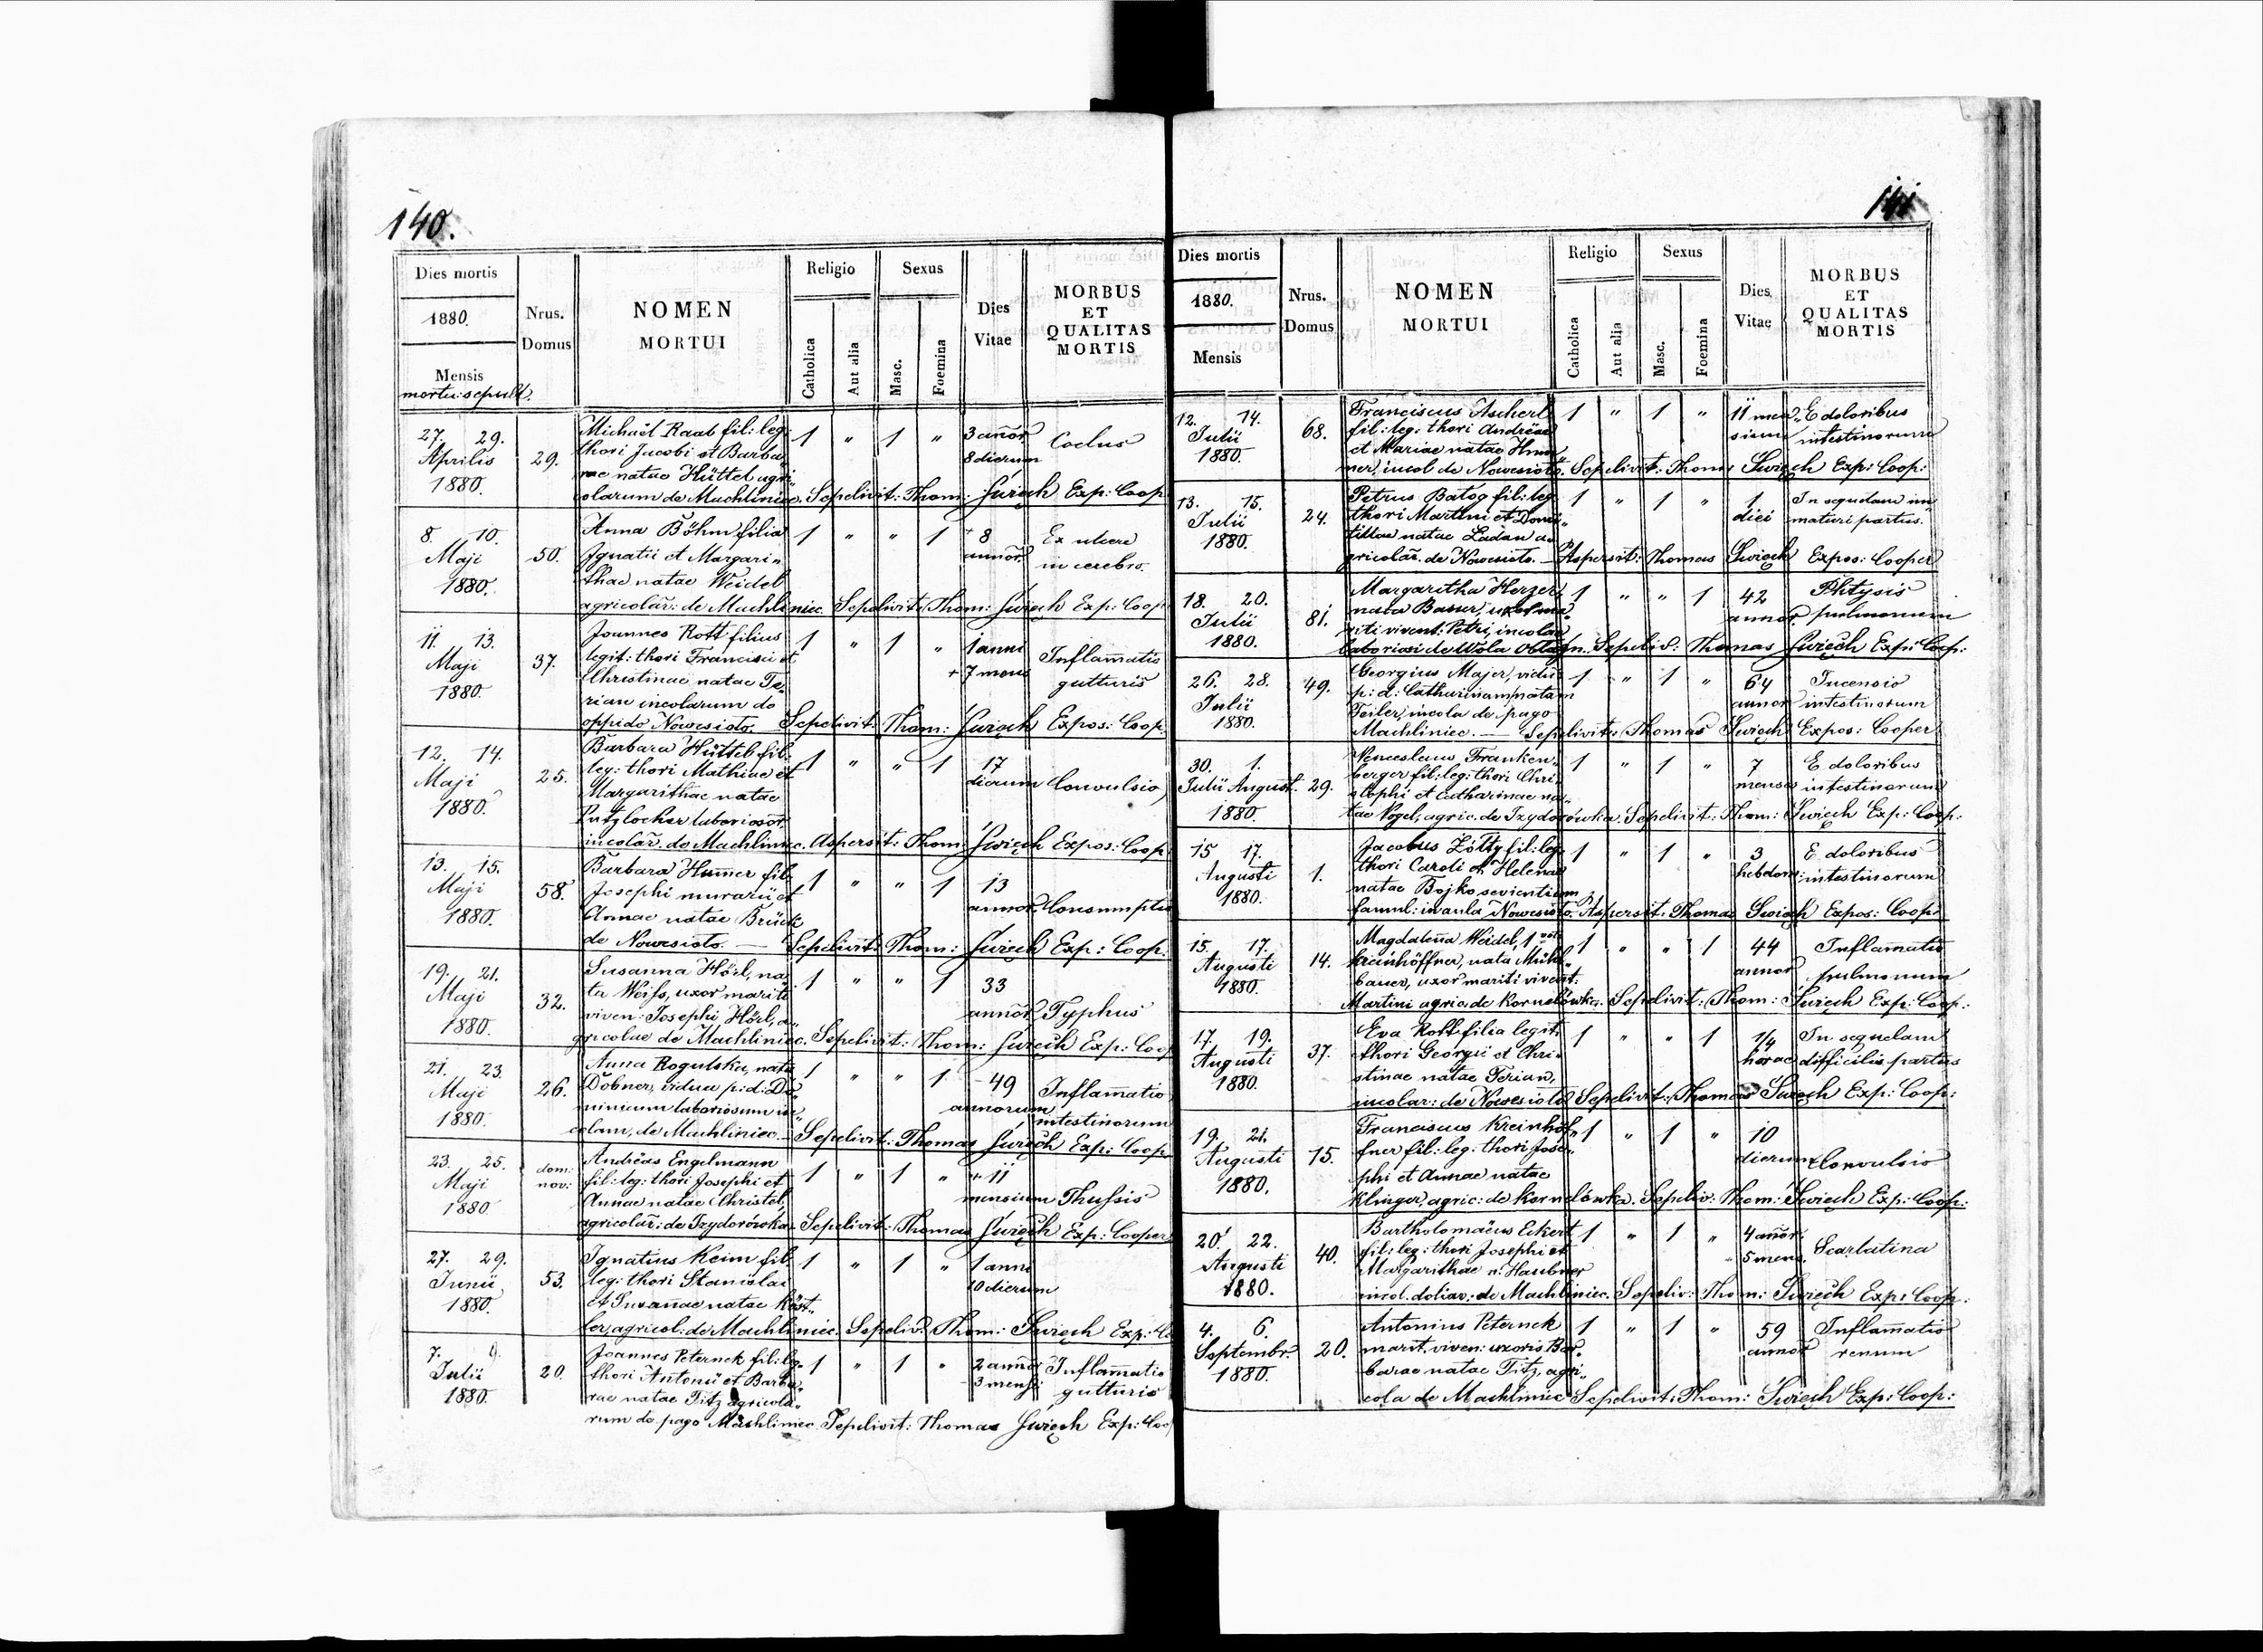 140.
Dies mortis
1880.
Mensis
mortu: sepult.
Nrus.
Domus
NOMEN
MORTUI
Religio
Catholica
Aut alia
Sexus
Masc.
Foemina
Dies
Vitae
MORBUS
ET
QUALITAS
MORTIS
27. 29.
Aprilis
1880.
29.
Michaël Raab fil: leg:
thori Jacobi et Barba„
rae natae Hüttel agri„
colarum de Machliniec. Sepelivit: Thom: Święch Exp: Coop.
1 „ 1 „
3 annor
8 dierum
8. 10.
Maji
1880.
50.
Anna Böhm filia
Ignatii et Margari„
thae natae Weidel
agricolar: de Machliniec. Sepelivit: Thom: Święch Exp: Coop
1 „ „ 1
8
annor.
Ex ulcere
in cerebro.
11. 13.
Maji
1880.
37.
Joannes Rott filius
legit: thori Francisci et
Christinae natae Te„
rian incolarum de
oppido Nowesioło. Sepelivit: Thom: Święch Expos: Coop.
1 „ 1 „
1 anni
+ 7 mens
Inflamatio
gutturis
12. 14.
Maji
1880.
25.
Barbara Hüttel fil:
leg: thori Mathiae et
Margarithae natae
Putzlocher laboriosor.
incolar. de Machliniec. Aspersit: Thom: Święch Expos: Coop.
1 „ „ 1
17
dierum
Convulsio
13. 15.
Maji
1880.
58.
Barbara Humer fil:
Josephi murarii et
Annae natae Brück
de Nowesioło. — Sepelivit: Thom: Święch Exp: Coop.
1 „ „ 1
13
annor.
Consumptio
19. 21.
Maji
1880.
32.
Susanna Hörl, na„
ta Weifs, uxor mariti
viven: Josephi Hörl, a„
gricolae de Machliniec. Sepelivit: Thom: Święch Exp: Coop
1 „ „ 1
33
annor.
Typhus
21. 23.
Maji
1880.
26.
Anna Rogulska, nata
Döbner, vidua p: d: Do„
minicum laboriosum in„
colam, de Machliniec. — Sepelivit: Thomas Święch Exp: Coop
1 „ „ 1
49
annorum
Inflamatio
intestinorum
23. 25.
Maji
1880
dom:
nov:
Andréas Engelmann
fil: leg: thori Josephi et
Annae natae Christel,
agricolar: de Izydorówka Sepelivit: Thomas Święch Exp: Cooper
1 „ 1 „
11
mensium
Thussis
27. 29.
Junii
1880.
53.
Ignatius Keim fil:
leg: thori Stanislai
et Susannae natae Köst„
ler, agricol: de Machliniec. Sepeliv: Thom: Święch Exp: Co
1 „ 1 „
1 anni
10 dierum
7. 9.
Julii
1880.
20.
Joannes Peternek fil: leg:
thori Antonii et Barba„
rae natae Titz agricola„
rum de pago Machliniec. Sepelivit: Thomas Święch Exp: Coo
1 „ 1 „
2 annor
3 mens:
Inflamatio
gutturis
141
Dies mortis
1880.
Mensis
Nrus.
Domus
NOMEN
MORTUI
Religio
Catholica
Aut alia
Sexus
Masc.
Foemina
Dies
Vitae
MORBUS
ET
QUALITAS
MORTIS
12. 14.
Julii
1880.
68.
Franciscus Ascherl
fil: leg: thori Andréae
et Mariae natae Hum„
mer, incol de Nowesioło. Sepelivit: Thom: Święch Exp: Coop:
1 „ 1 „
11 men„
sium
E doloribus
intestinorum
13. 15.
Julii
1880.
24.
Petrus Batog fil: leg:
thori Martini et Domi„
tillae natae Ladan a„
gricolar. de Nowesioło. — Aspersit: Thomas Święch Expos: Cooper
1 „ 1 „
1
diei
In sequelam im„
maturi partus.
18. 20.
Julii
1880.
81.
Margaritha Herzer,
nata Bauer, uxor ma„
riti vivent: Petri, incolae
laboriosi de Wola Obłazn. Sepeliv: Thomas Święch Exp: Coop:
1 „ „ 1
42
annor.
Phtysis
pulmonum
26. 28.
Julii
1880.
49.
Georgius Majer, vidu„
p: d: Catharinam natam
Teiler, incola de pago
Machliniec. — Sepelivit: Thomas Święch Expos: Cooper
1 „ 1 „
64
annor
Incensio
intestinorum
30. 1.
Julii August.
1880.
29.
Venceslaus Franken„
berger fil: leg: thori Chri„
stophi et Catharinae na„
tae Vogel, agric. de Izydorówka. Sepelivit: Thom: Święch Exp: Coop:
1 „ 1 „
7
menses
E doloribus
intestinorum
15 17.
Augusti
1880.
1.
Jacobus Żółty fil: leg:
thori Caroli et Helenae
natae Bojko servientium
famul: in aula Nowesioło. Aspersit: Thomas Święch Expos: Coop:
1 „ 1 „
3
hebdom:
E doloribus
intestinorum
15. 17.
Augusti
1880.
14.
Magdalena Weidel, 1 vot.
Kreinhöffner, nata Mühl„
bauer, uxor mariti vivent:
Martini agric. de Kornelówka. Sepelivit: Thom: Święch Exp: Coop:
1 „ „ 1
44
annor
Inflamatio
pulmonum
17. 19.
Augusti
1880.
37.
Eva Rott filia legit:
thori Georgii et Chri„
stinae natae Terian,
incolar: de Nowesioło Sepelivit: Thomas Święch Exp: Coop:
1 „ „ 1
1/4
horae
In sequelam
difficilis partus
19. 21.
Augusti
1880.
15.
Franciscus Kreinhöf„
fner fil: leg: thori Jose„
phi et Annae natae
Klinger, agric: de Kornelówka. Sepeliv: Thom: Święch Exp: Coop:
1 „ 1 „
10
dierum
Convulsio
20. 22.
Augusti
1880.
40.
Bartholomäeus Eckert
fil: leg: thori Josephi et
Margarithae n: Haubner
incol. doliar: de Machliniec. Sepeliv: Thom: Święch Exp: Coop:
1 „ 1 „
4 annor.
5 mens.
Scarlatina
4. 6.
Septembr.
1880.
20.
Antonius Peternek
marit. viven: uxoris Bar„
barae natae Titz, agri„
cola de Machliniec Sepelivit: Thom: Święch Exp: Coop:
1 „ 1 „
59
annor
Inflamatio
renum